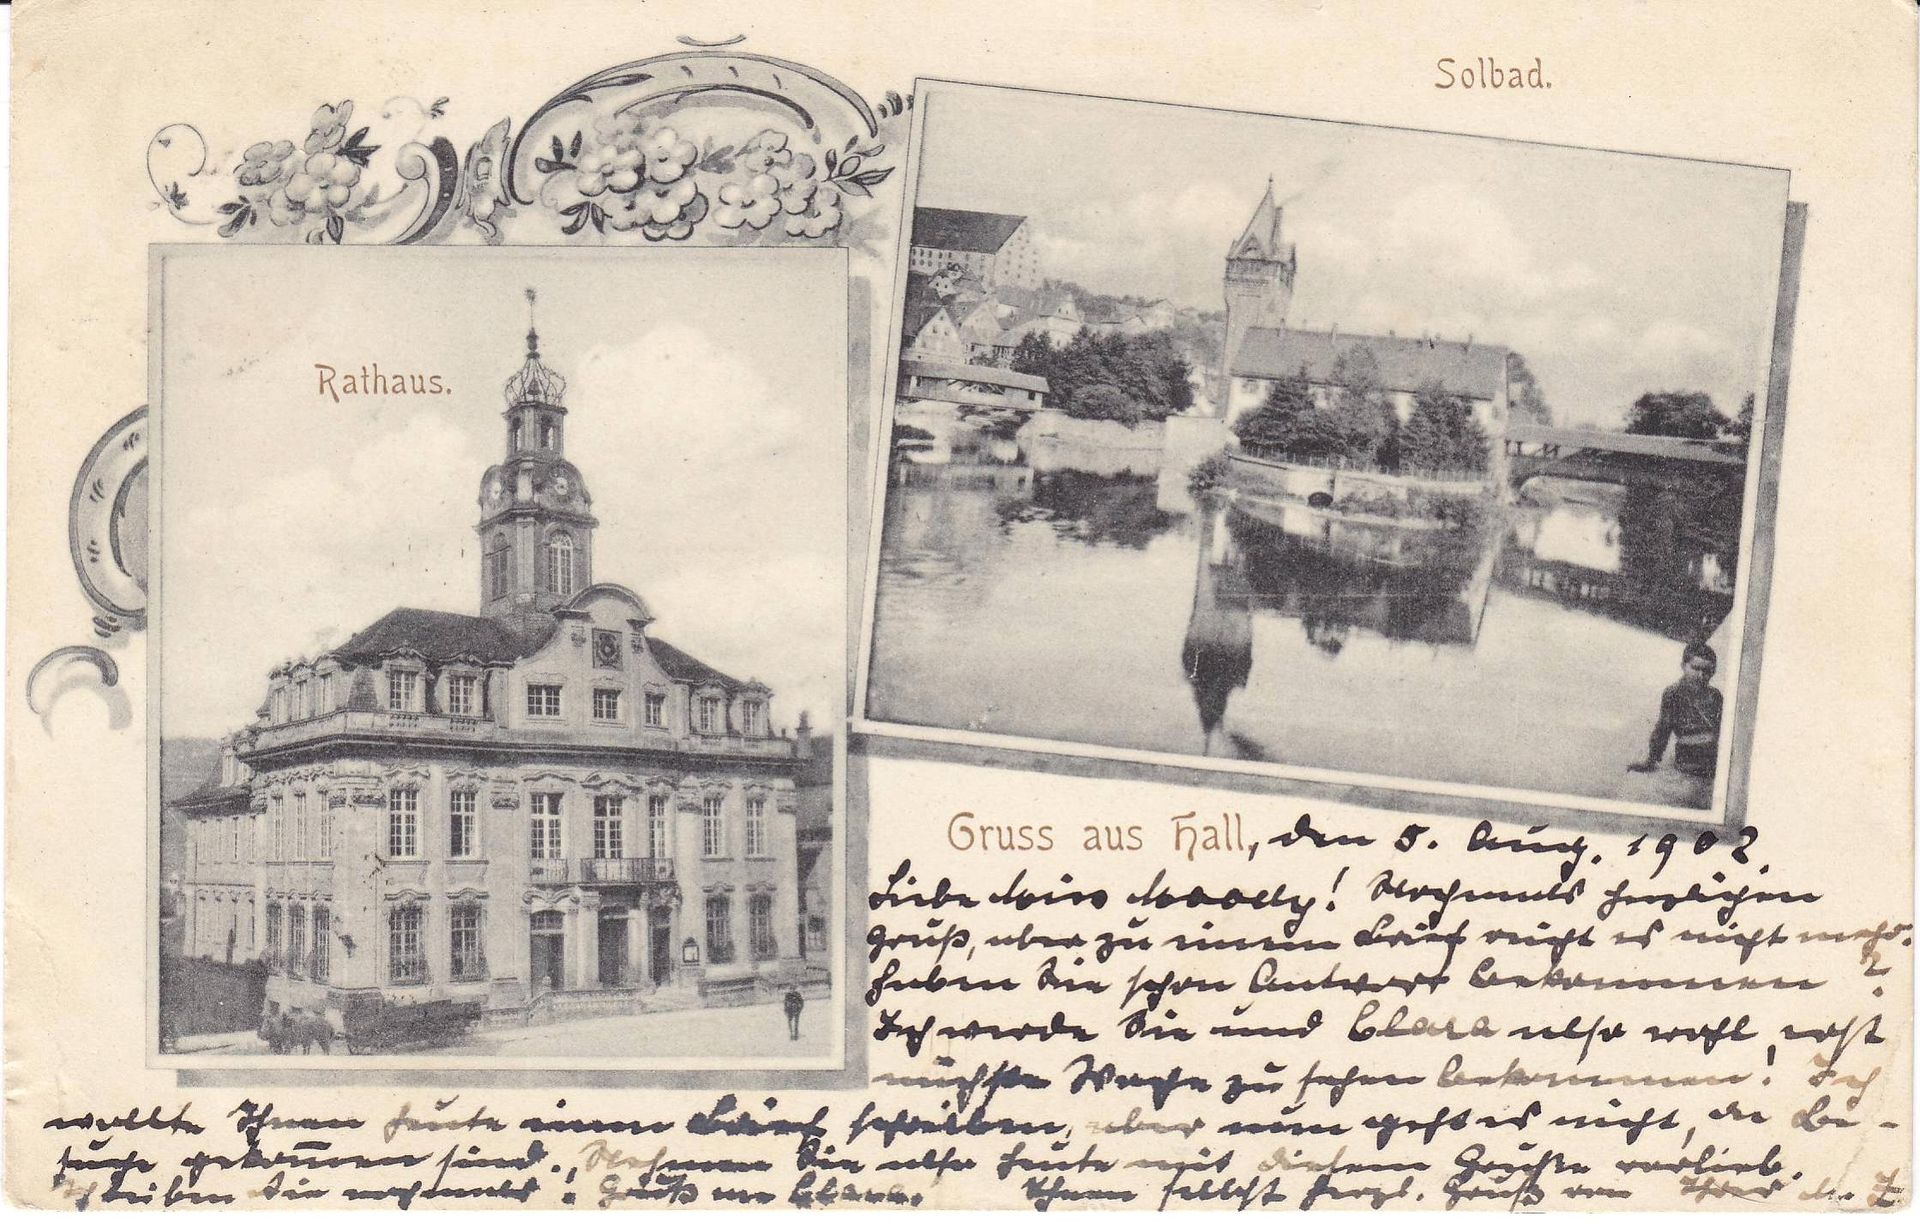 Solbad.
Rathaus.
Gruss aus Hall, den 5. Aug. 1902.
Liebe Miss Moolly! Nochmals herzlichen
Gruß, aber zu einem Brief reicht es nicht mehr.
Haben Sie schon Antwort bekommen?
Ich werde Sie und Clara also wohl erst
nächste Woche zu sehen bekommen! Ich
wollte Ihnen heute einen Brief schreiben, aber nun geht es nicht, da Be-
suche gekommen sind. Nehmen Sie also heute mit diesem Gruße vorlieb.
Schreiben Sie nochmals! Gruß an Clara. Ihnen selbst herzl. Gruß von Ihrer